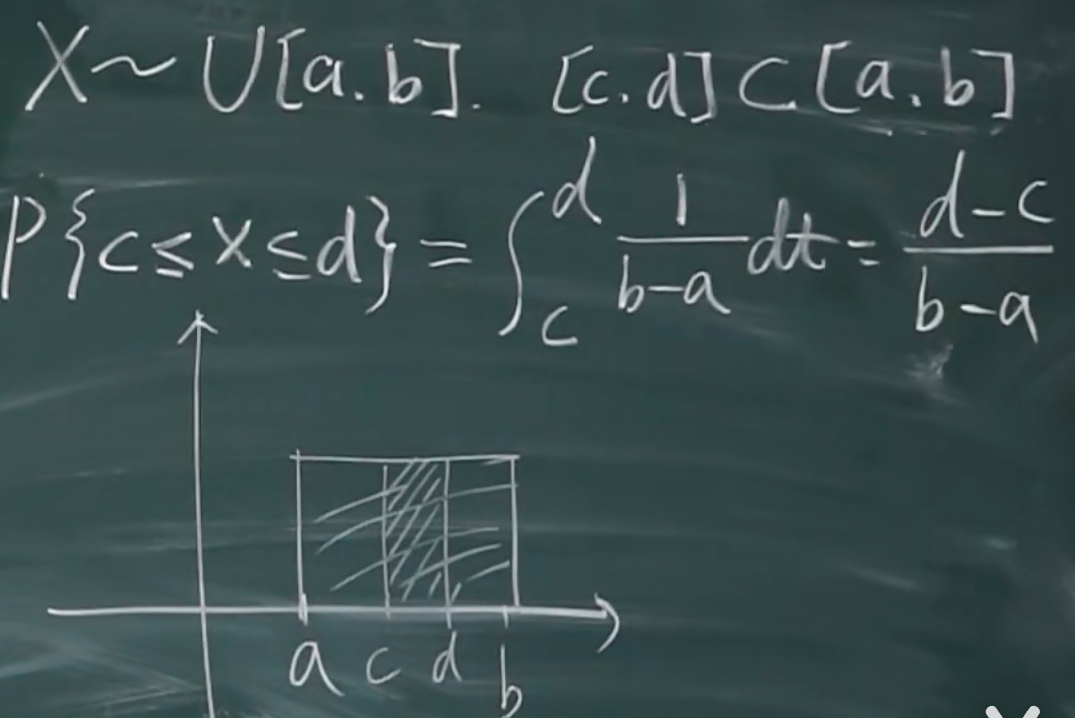 X ~ U[a.b]. [c.d] ⊂ [a.b]
P{c≤X≤d} = ∫_c^d 1/(b-a) dt = (d-c)/(b-a)
a c d b